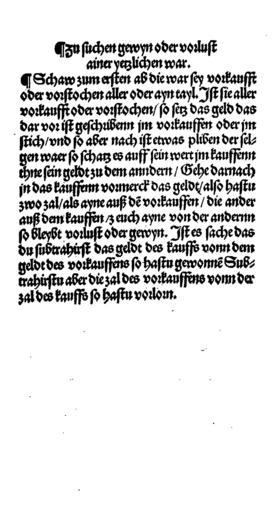 ¶ Zu suchen gewyn oder vorlust
ainer yetzlichen war.
¶ Schaw zum ersten ab die war sey vorkaufft
oder vorstochen aller oder ayn tayl. Ist sie aller
vorkaufft oder vorstochen/ so setz das geld das
dar vor ist geschribenn im vorkauffen oder im
stich/ vnd so aber nach ist etwas pliben der sel-
gen waer so schatz es auff sein wert im kauffenn
thue sein geldt zu dem anndern/ Gehe darnach
in das kauffenn vormerck das geldt/ also hastu
zwo zal/ als ayne auß dē vorkauffen/ die ander
auß dem kauffen/ zeuch ayne von der andernn
so bleybt vorlust oder gewyn. Ist es sache das
du subtrahirst das geldt des kauffs vonn dem
geldt des vorkauffens so hastu gewonnē Sub-
trahirstu aber die zal des vorkauffens vonn der
zal des kauffs so hastu vorlorn.